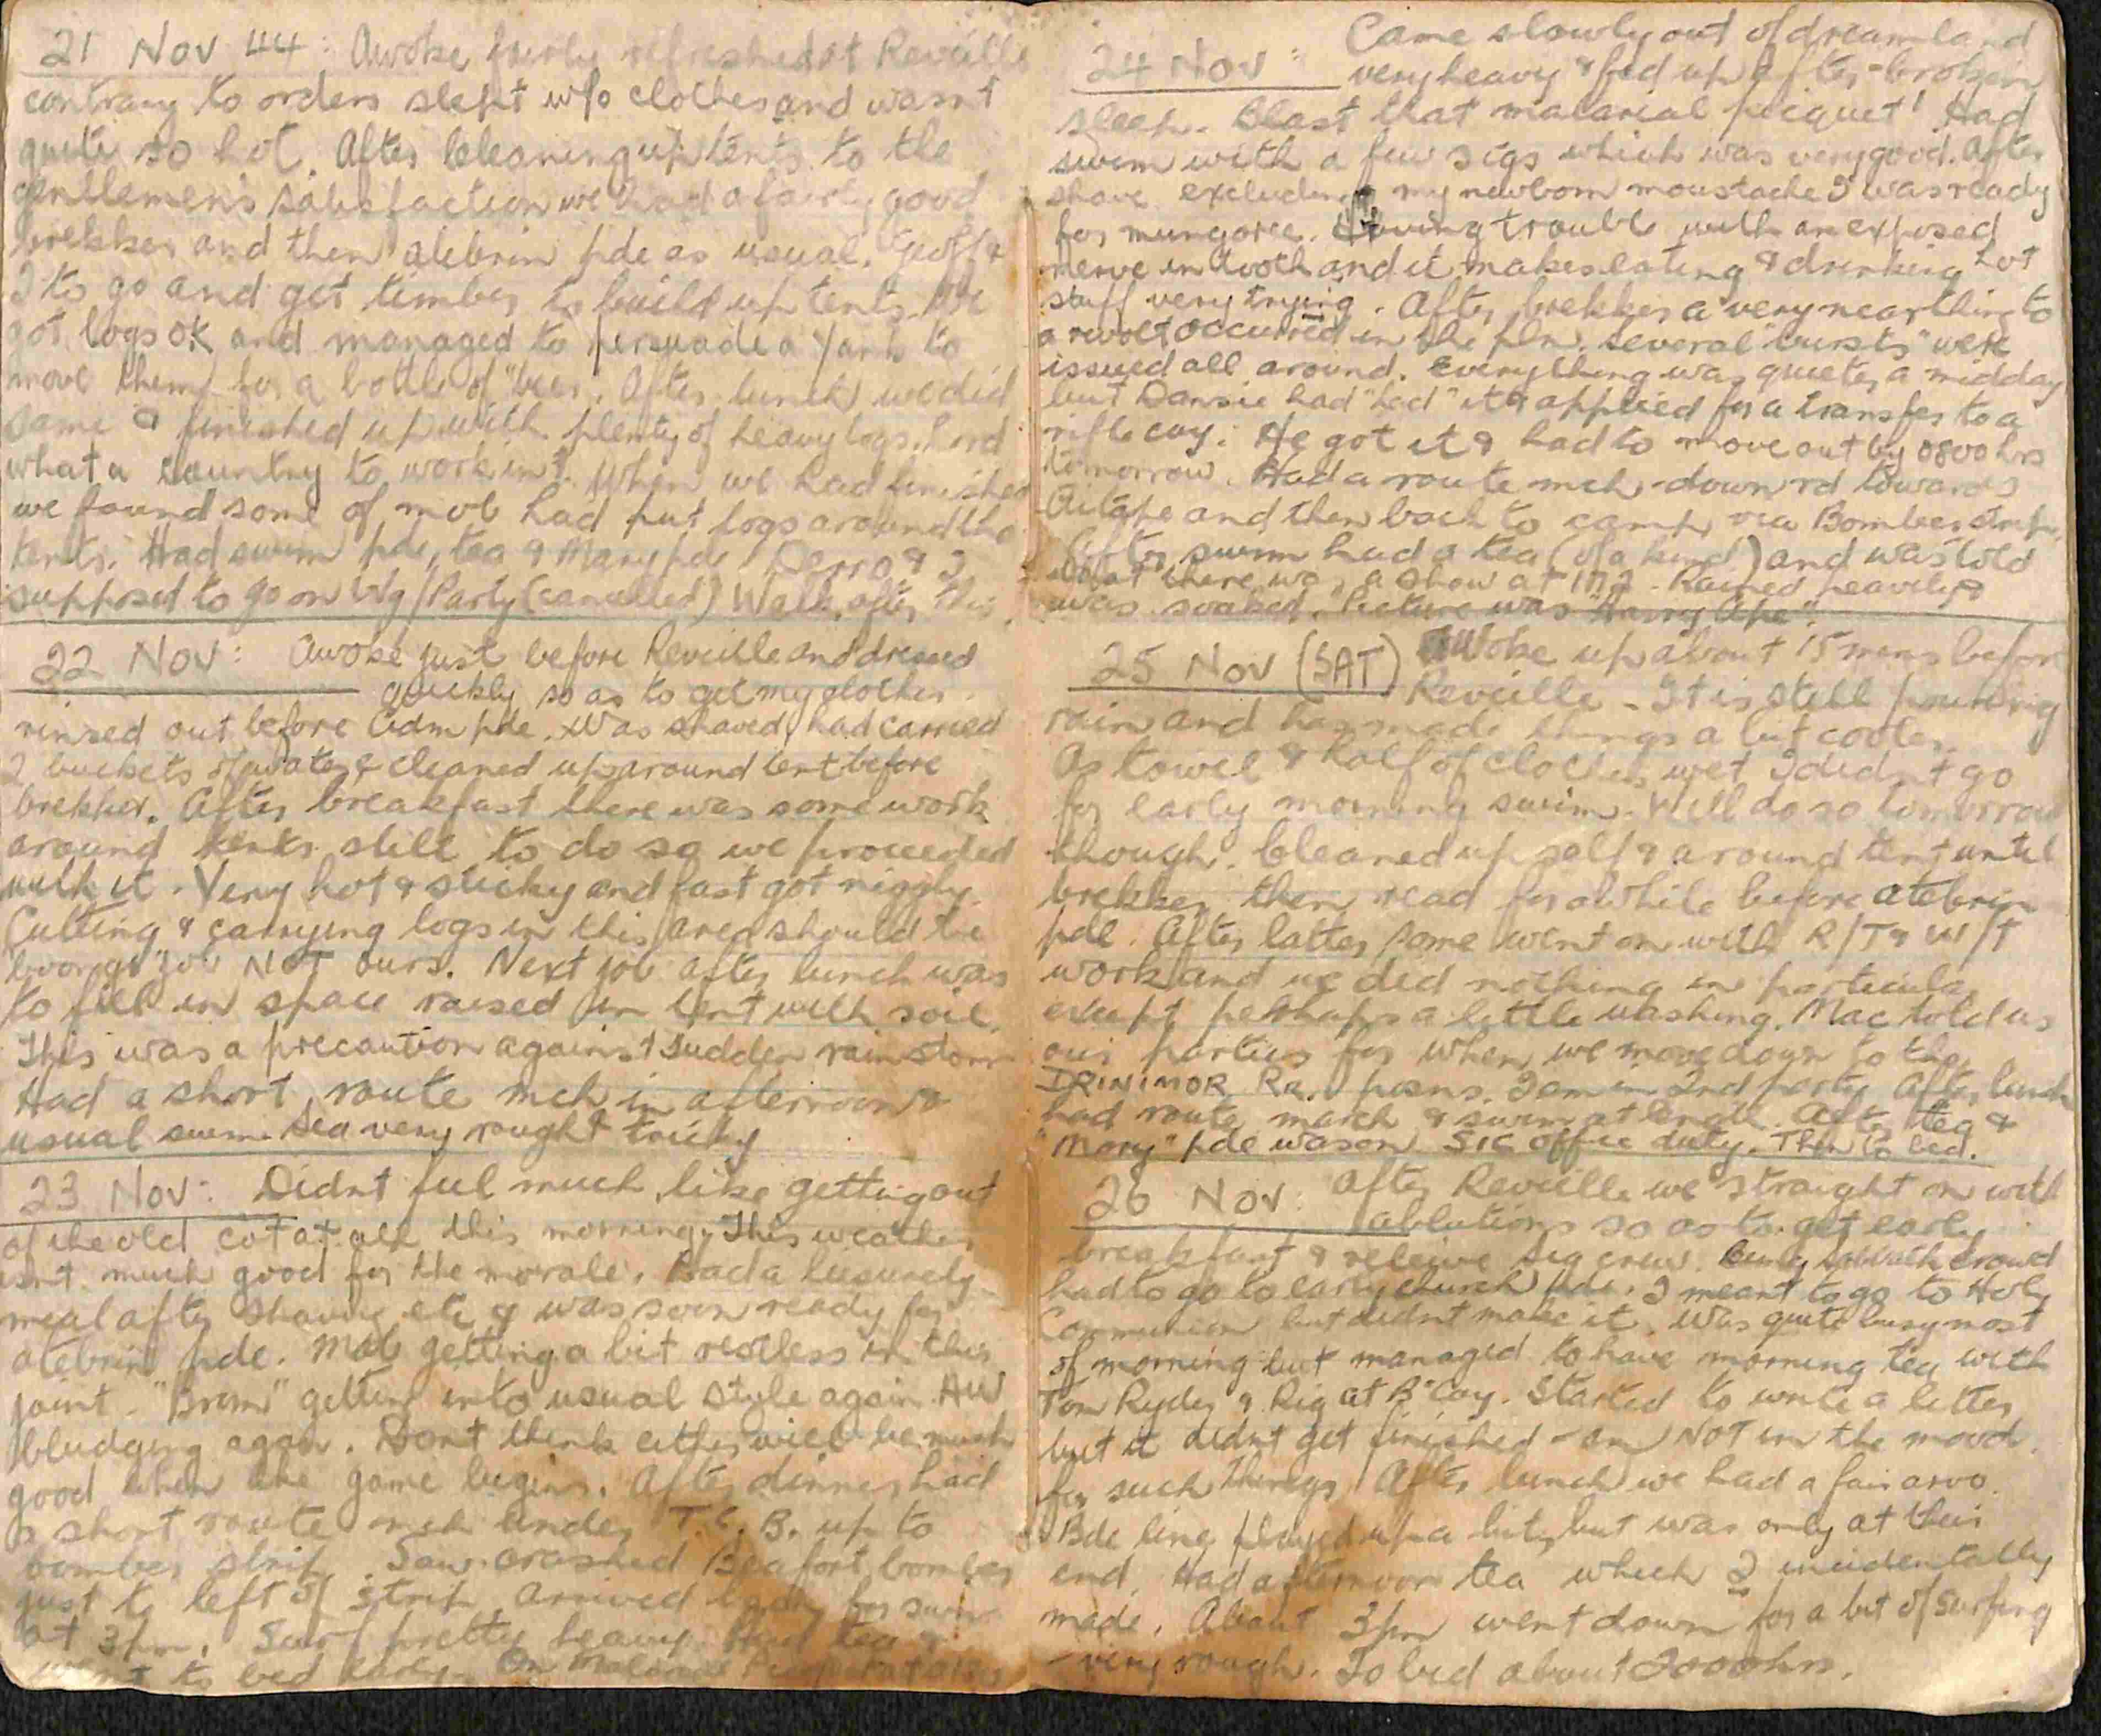 21 Nov 44: Awoke fairly refreshed at Reveille
contrary to orders slept w/o clothes and wasnt
quite so hot. After cleaning up tents to the
gentlemen's satisfaction we had a fairly good
brekker and then atebrin pde as usual. Geoff &
I to go and get timber to build up tents. We
got logs OK and managed to persuade a Yank to
move them for a bottle of "beer. After lunch we did
same & finished up with plenty of heavy logs. Lord
what a country to work in! When we had finished
we found some of mob had put logs around the
tents. Had swim pde, tea & Mary pde. Derro & I
supposed to go on Wg/Party (cancelled) Walk after this.
22 Nov: Awoke just before Reveille and dressed
quickly so as to get my clothes
rinsed out before Adm pde. Was shaved, had carried
2 buckets of water & cleaned up around tent before
brekker. After breakfast there was some work
around tents still to do so we proceeded
with it. Very hot & sticky and fast got niggly.
Cutting & carrying logs in this area should be
boongs' job NOT ours. Next job after lunch was
to fill in space raised in tent with soil.
This was a precaution against sudden rain storm
Had a short route mch in afternoon &
usual swim. Sea very rough & tricky
23 Nov: Didnt feel much like getting out
of the old cot at all this morning. This weather
isnt much good for the morale. Had a leisurely
meal after shaving etc & was soon ready for
atebrin pde. Mob getting a bit restless in this
joint. "Brom" getting into usual style again. AW
bludging again. Dont think either will be much
good when the game begins. After dinner had
a short route mch under T.C.B. up to
bomber strip. Saw crashed Beafort bomber
just to left of strip. Arrived back for swim
at 3pm. Surf pretty heavy. Had tea &
went to bed early. On Malarial Picquet at
24 Nov: Came slowly out of dreamland
very heavy & fed up after broken
sleep. Blast that malarial picquet! Had
swim with a few sigs which was very good. After
shave excluding my newborn moustache I was ready
for mungaree. Having trouble with an exposed
nerve in tooth and it makes eating & drinking hot
stuff very trying. After brekker a very near thing to
a revolt occurred in the pln. Several "bursts" were
issued all around. Everything was quieter a midday
but Dansie had "had" it & applied for a transfer to a
rifle coy. He got it & had to move out by 0800 hrs
tomorrow. Had a route mch down rd towards
Aitape and then back to camp via Bomber Strip.
After swim had a tea (of a kind) and was told
that there was a show at 1M2. Rained heavily &
was soaked. Picture was "Harry Ape".
25 Nov (SAT) Awoke up about 15 mins before
Reveille - It is still pouring
rain and has made things a bit cooler.
As towel & half of clothes wet I didn't go
for early morning swim. Will do so tomorrow
though. Cleaned up self & around tent until
brekker then read for a while before atebrin
pde. After latter some went on with R/T & W/T
work and we did nothing in particular
except perhaps a little washing. Mac told us
our parties for when we move down to the
DRINIMOR Rr. posns. I am in 2nd party. After lunch
had route march & swim at length. After tea &
"Mary" pde was on SIG office duty. Then to bed.
26 Nov: After Reveille we straight on with
ablutions so as to get early
breakfast & relieve sig crew. Being Sabbath crowd
had to go to early church pde. I meant to go to Holy
Communion but didnt make it. Was quite busy most
of morning but managed to have morning tea with
Tom Ryder & Reg at B Coy. Started to write a letter
but it didnt get finished - am NOT in the mood
for such things. After lunch we had a fair arvo.
Bde line played up a bit, but was only at their
end. Had afternoon tea which I incidentally
made. About 3pm went down for a bit of surfing
- very rough. To bed about 2000hrs.